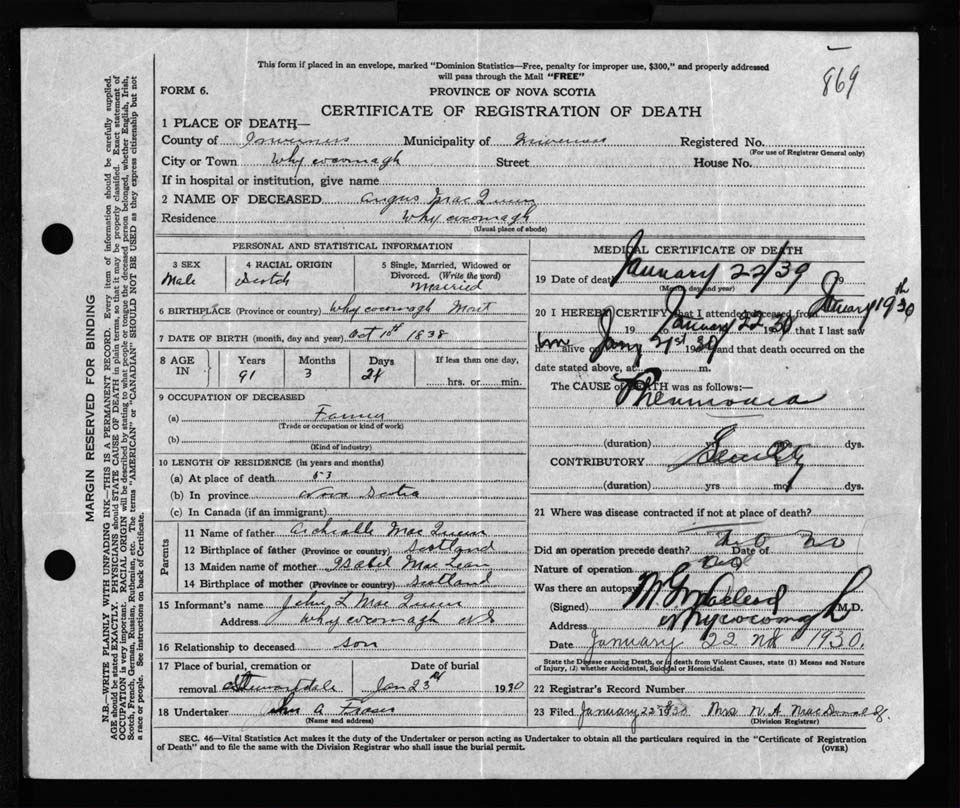 869
This form if placed in an envelope, marked "Dominion Statistics—Free, penalty for improper use, $300," and properly addressed
will pass through the Mail "FREE"
FORM 6.
PROVINCE OF NOVA SCOTIA
CERTIFICATE OF REGISTRATION OF DEATH
1 PLACE OF DEATH—
County of Inverness Municipality of Inverness Registered No.
(For use of Registrar General only)
City or Town Whycocomagh Street House No.
If in hospital or institution, give name
2 NAME OF DECEASED Angus MacQueen
Residence Whycocomagh
(Usual place of abode)
PERSONAL AND STATISTICAL INFORMATION
3 SEX 4 RACIAL ORIGIN 5 Single, Married, Widowed or
Divorced. (Write the word)
Male Scotch Married
6 BIRTHPLACE (Province or country) Whycocomagh Mount
7 DATE OF BIRTH (month, day and year) Oct 10th 1838
8 AGE IN Years Months Days If less than one day,
91 3 24 hrs. or min.
9 OCCUPATION OF DECEASED
(a) Farmer
(Trade or occupation or kind of work)
(b)
(Kind of industry)
10 LENGTH OF RESIDENCE (in years and months)
(a) At place of death 53
(b) In province Nova Scotia
(c) In Canada (if an immigrant)
Parents
11 Name of father MacQueen
12 Birthplace of father (Province or country) Scotland
13 Maiden name of mother Isabel MacLean
14 Birthplace of mother (Province or country) Scotland
15 Informant's name John L MacQueen
Address Whycocomagh NS
16 Relationship to deceased son
17 Place of burial, cremation or Date of burial
removal Stewartdale Jan 23rd 1930
18 Undertaker John A Fraser
(Name and address)
MEDICAL CERTIFICATE OF DEATH
19 Date of death January 22/30 19
(Month, day and year)
20 I HEREBY CERTIFY that I attended deceased from January 19th 30
19 to January 22 30 19 that I last saw
him alive on Jany 21st 30 19 and that death occurred on the
date stated above, at m.
The CAUSE OF DEATH was as follows:—
Pneumonia
(duration) yrs mos. dys.
CONTRIBUTORY Senility
(duration) yrs mos dys.
21 Where was disease contracted if not at place of death?
Did an operation precede death? No Date of
Nature of operation
Was there an autopsy
(Signed) MacLeod M.D.
Address Whycocomagh
Date January 22nd 1930.
State the Disease causing Death, or in death from Violent Causes, state (1) Means and Nature
of Injury, (2) whether Accidental, Suicidal or Homicidal.
22 Registrar's Record Number
23 Filed January 22 1930 Mrs N. A. MacDonald
(Division Registrar)
SEC. 46—Vital Statistics Act makes it the duty of the Undertaker or person acting as Undertaker to obtain all the particulars required in the "Certificate of Registration
of Death" and to file the same with the Division Registrar who shall issue the burial permit.
(OVER)
MARGIN RESERVED FOR BINDING
N.B.—WRITE PLAINLY WITH UNFADING INK—THIS IS A PERMANENT RECORD. Every item of information should be carefully supplied.
AGE should be stated EXACTLY. PHYSICIANS should STATE CAUSE OF DEATH in plain terms, so that it may be properly classified. Exact statement of
OCCUPATION is very important. RACIAL ORIGIN will be described by stating to what people or tongue the deceased person belonged, whether English, Irish,
Scotch, French, German, Russian, Ruthenian, etc. The terms "AMERICAN" or "CANADIAN" SHOULD NOT BE USED as they express citizenship but not
a race or people. See instructions on back of Certificate.